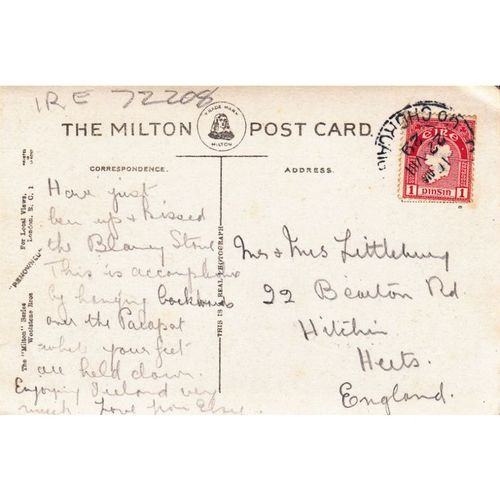 IRE 72208
TRADE MARK
MILTON
THE MILTON POST CARD.
CORRESPONDENCE.
ADDRESS.
ÉIRE
1 PINSIN 1
Have just
been up & kissed
the Blarney Stone
This is accomplished
by hanging backwards
over the Parapat
while your feet
are held down.
Enjoying Ireland very
much Love from Elsie
Mr & Mrs Littlebury
92 Bearton Rd
Hitchin
Herts.
England.
THIS IS A REAL PHOTOGRAPH
"RENOWNED"
For Local Views.
London, E. C. 1
The "Milton" Series
Woolstone Bros